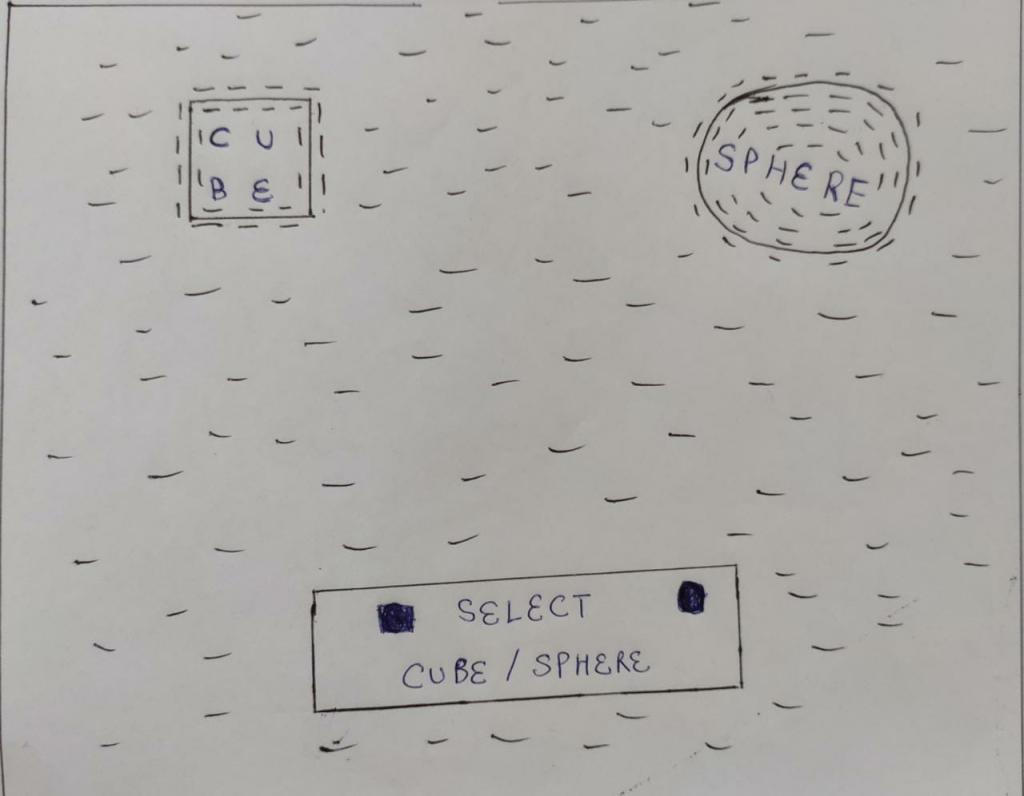 C U
B E
SPHERE
SELECT
CUBE / SPHERE